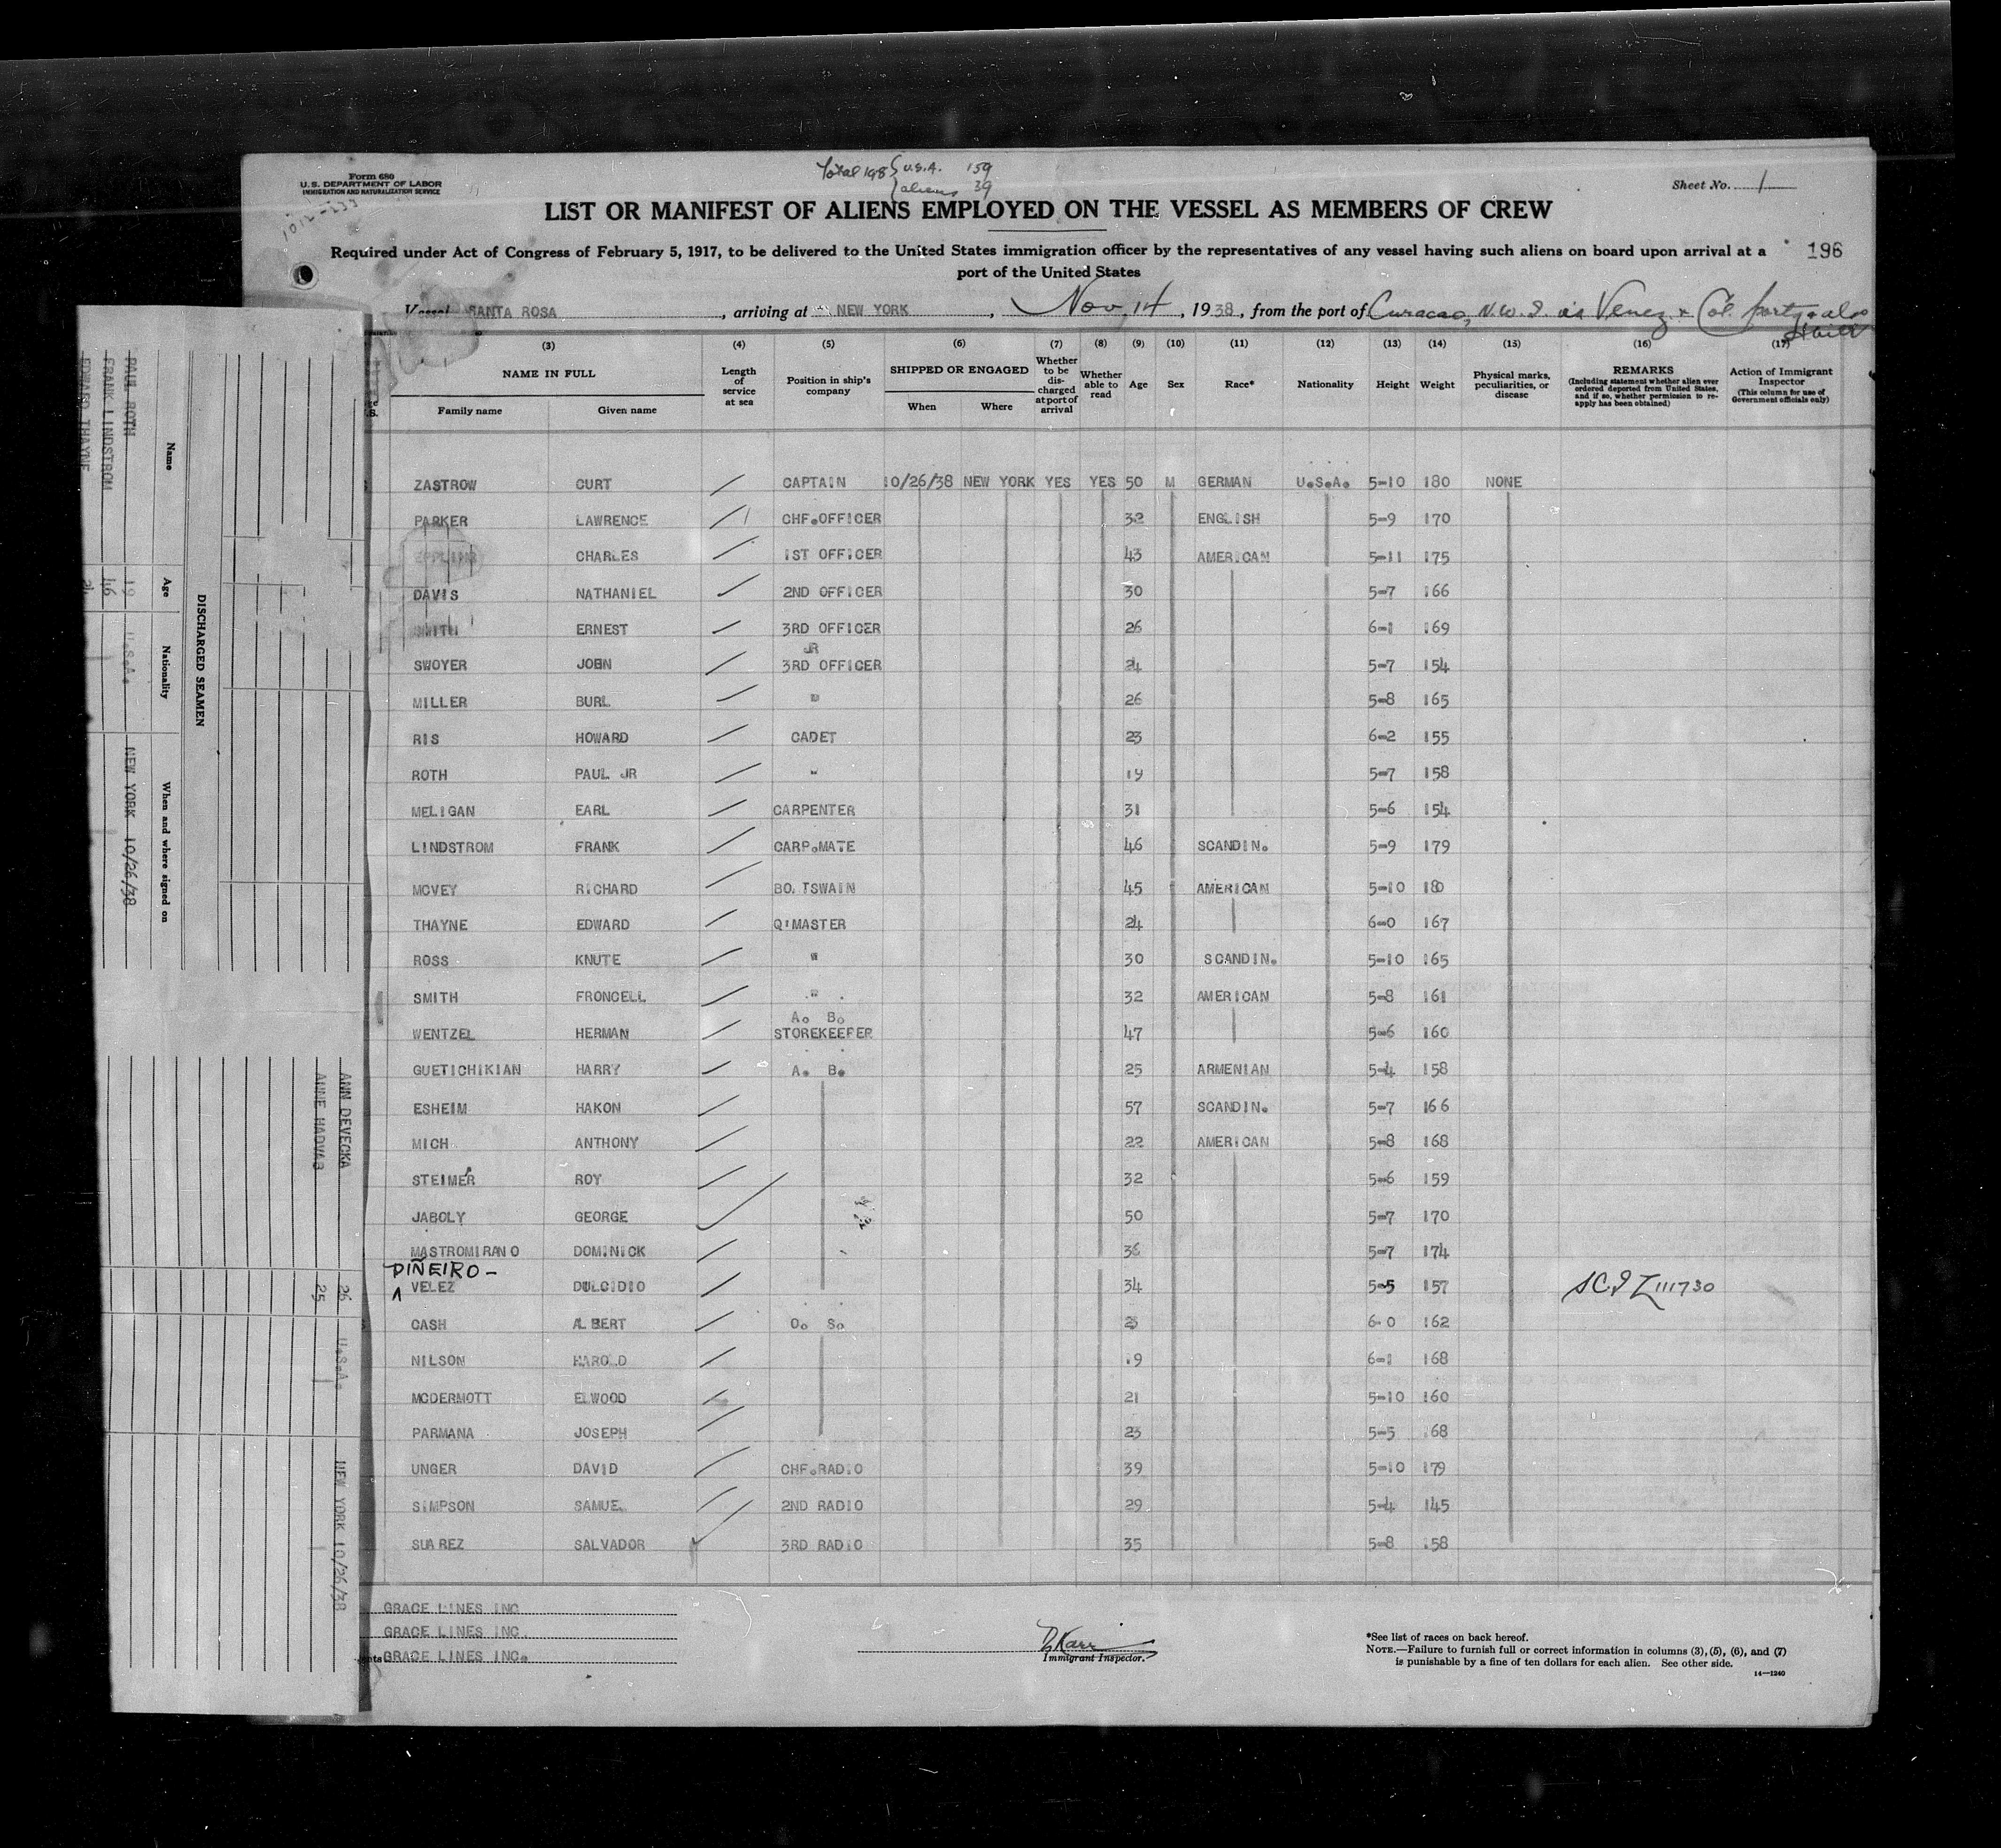 Form 680
U. S. DEPARTMENT OF LABOR
IMMIGRATION AND NATURALIZATION SERVICE
Total 198 { U.S.A. 159
aliens 39
Sheet No. 1
LIST OR MANIFEST OF ALIENS EMPLOYED ON THE VESSEL AS MEMBERS OF CREW
Required under Act of Congress of February 5, 1917, to be delivered to the United States immigration officer by the representatives of any vessel having such aliens on board upon arrival at a
port of the United States
196
Vessel SANTA ROSA, arriving at NEW YORK, Nov 14, 1938, from the port of Curacao, N.W.I. via Venez & Col. ports also
(3) (4) (5) (6) (7) (8) (9) (10) (11) (12) (13) (14) (15) (16) (17)
NAME IN FULL
Family name Given name
Length of service at sea
Position in ship's company
SHIPPED OR ENGAGED
When Where
Whether to be discharged at port of arrival
Whether able to read
Age Sex Race* Nationality Height Weight
Physical marks, peculiarities, or disease
REMARKS
(Including statement whether alien ever ordered deported from United States, and if so, whether permission to re-apply has been obtained)
Action of Immigrant Inspector
(This column for use of Government officials only)
ZASTROW CURT CAPTAIN 10/26/38 NEW YORK YES YES 50 M GERMAN U.S.A. 5-10 180 NONE
PARKER LAWRENCE CHF.OFFICER 32 ENGLISH 5-9 170
CHARLES 1ST OFFICER 43 AMERICAN 5-11 175
DAVIS NATHANIEL 2ND OFFICER 30 5-7 166
SMITH ERNEST 3RD OFFICER 26 6-1 169
JR
SWOYER JOHN 3RD OFFICER 24 5-7 154
MILLER BURL " 26 5-8 165
RIS HOWARD CADET 23 6-2 155
ROTH PAUL JR " 19 5-7 158
MELIGAN EARL CARPENTER 31 5-6 154
LINDSTROM FRANK CARP.MATE 46 SCANDIN. 5-9 179
MCVEY RICHARD BO.TSWAIN 45 AMERICAN 5-10 180
THAYNE EDWARD Q'MASTER 24 6-0 167
ROSS KNUTE " 30 SCANDIN. 5-10 165
SMITH FRONCELL " 32 AMERICAN 5-8 161
A. B.
WENTZEL HERMAN STOREKEEPER 47 5-6 160
GUETICHIKIAN HARRY A. B. 25 ARMENIAN 5-4 158
ESHEIM HAKON 57 SCANDIN. 5-7 166
MICH ANTHONY 22 AMERICAN 5-8 168
STEIMER ROY 32 5-6 159
JABOLY GEORGE 50 5-7 170
MASTROMIRANO DOMINICK 36 5-7 174
PIÑEIRO-
VELEZ DULCIDIO 34 5-5 157
CASH ALBERT O. S. 6-0 162
NILSON HAROLD 19 6-1 168
MCDERMOTT ELWOOD 21 5-10 160
PARMANA JOSEPH 23 5-5 168
UNGER DAVID CHF.RADIO 39 5-10 179
SIMPSON SAMUEL 2ND RADIO 29 5-4 145
SUAREZ SALVADOR 3RD RADIO 35 5-8 158
GRACE LINES INC
GRACE LINES INC.
GRACE LINES INC.
Immigrant Inspector.
*See list of races on back hereof.
NOTE.—Failure to furnish full or correct information in columns (3), (5), (6), and (7)
is punishable by a fine of ten dollars for each alien. See other side.
14—1240
DISCHARGED SEAMEN
Name Age Nationality When and where signed on
PAUL ROTH 19 U.S.A. NEW YORK 10/26/38
FRANK LINDSTROM 46
EDWARD THAYNE
ANN DEVECKA 26 U.S.A. NEW YORK 10/26/38
ANNE HADVAB 25